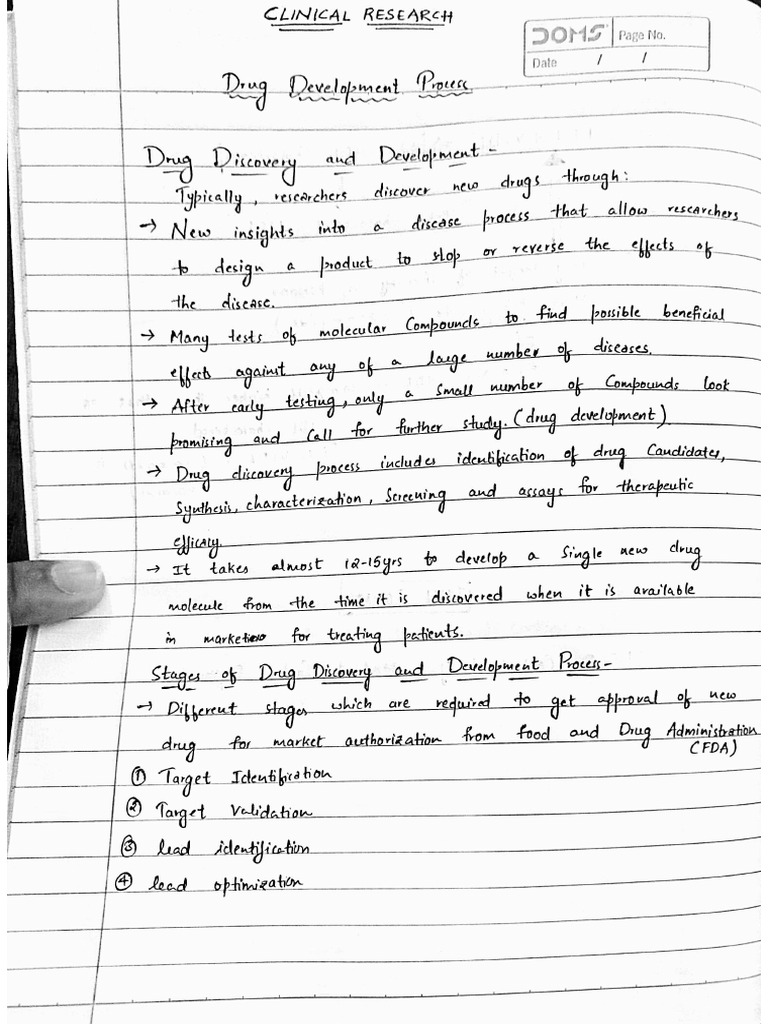 CLINICAL RESEARCH
DOMS Page No.
Date / /
Drug Development Process
Drug Discovery and Development -
Typically, researchers discover new drugs through:
→ New insights into a disease process that allow researchers
to design a product to stop or reverse the effects of
the disease.
→ Many tests of molecular Compounds to find possible beneficial
effects against any of a large number of diseases.
→ After early testing, only a small number of Compounds look
promising and call for further study. (drug development)
→ Drug discovery process includes identification of drug Candidates,
Synthesis, characterization, Screening and assays for therapeutic
efficacy.
→ It takes almost 12-15yrs to develop a single new drug
molecule from the time it is discovered when it is available
in market for treating patients.
Stages of Drug Discovery and Development Process-
→ Different stages which are required to get approval of new
drug for market authorization from food and Drug Administration
(FDA)
① Target Identification
② Target Validation
③ lead identification
④ lead optimization